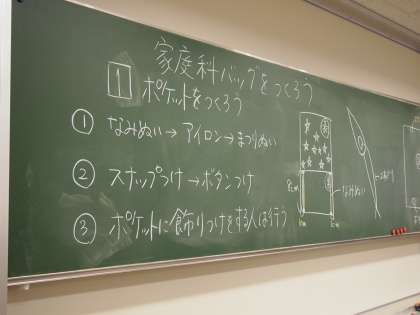 家庭科バッグをつくろう
1 ポケットをつくろう
① なみぬい→アイロン→まつりぬい
② スナップつけ→ボタンつけ
③ ポケットに飾りつけをする人は行う
なみぬい